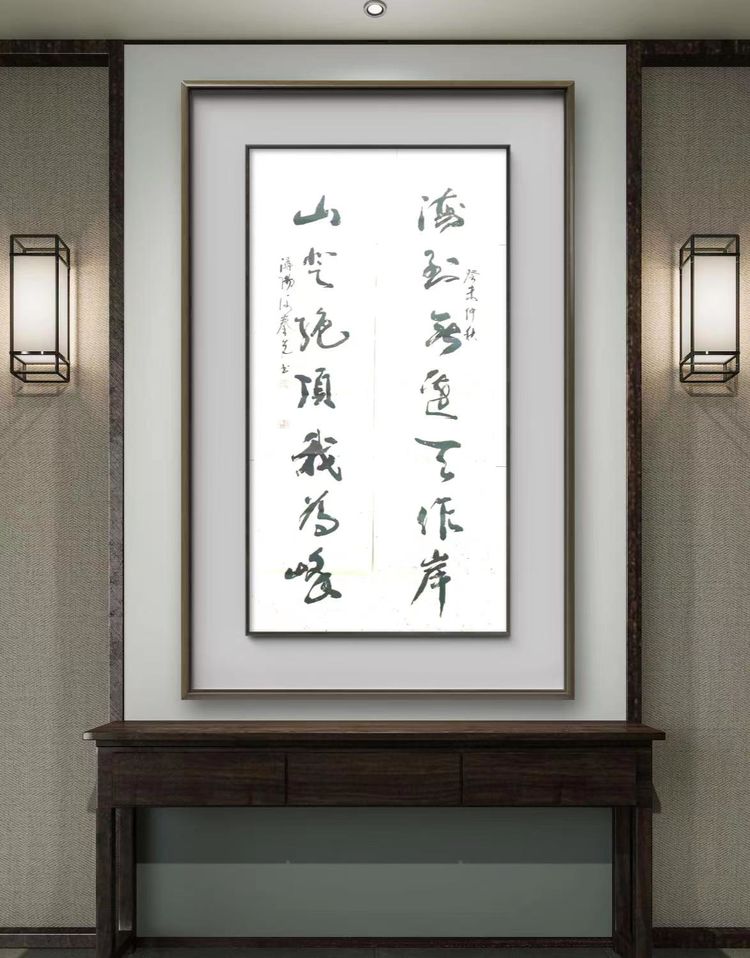 海到無邊天作岸
癸未仲秋
山登絕頂我為峰
潯陽